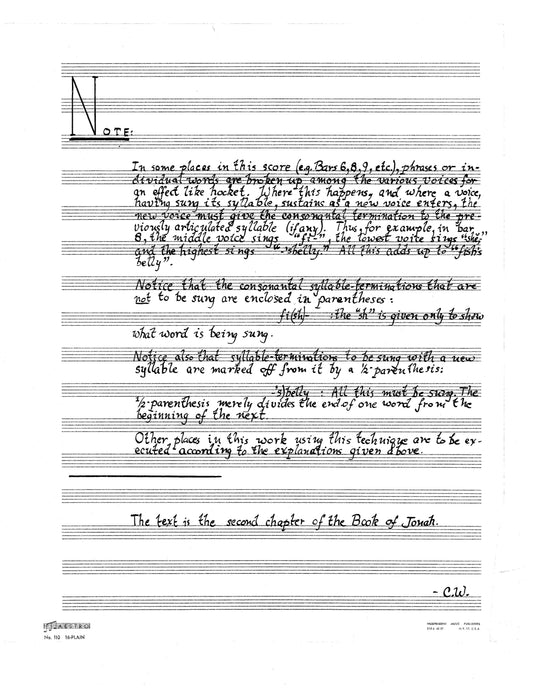 NOTE:
In some places in this score (e.g. Bars 6, 8, 9, etc.), phrases or in-
dividual words are broken up among the various voices for
an effect like hocket. Where this happens, and where a voice,
having sung its syllable, sustains as a new voice enters, the
new voice must give the consonantal termination to the pre-
viously articulated syllable (if any). Thus, for example, in bar
8, the middle voice sings "fi-", the lowest voice sings "she,"
and the highest sings "-'sbelly." All this adds up to "fish's
belly".
Notice that the consonantal syllable-terminations that are
not to be sung are enclosed in parentheses:
fi(sh)- : the "sh" is given only to show
what word is being sung.
Notice also that syllable-terminations to be sung with a new
syllable are marked off from it by a ½-parenthesis:
-'s)belly : All this must be sung. The
½-parenthesis merely divides the end of one word from the
beginning of the next.
Other places in this work using this technique are to be ex-
ecuted according to the explanations given above.
The text is the second chapter of the Book of Jonah.
- C.W.
MAESTRO
No. 110 16-PLAIN
INDEPENDENT MUSIC PUBLISHERS
N.Y. U.S.A.